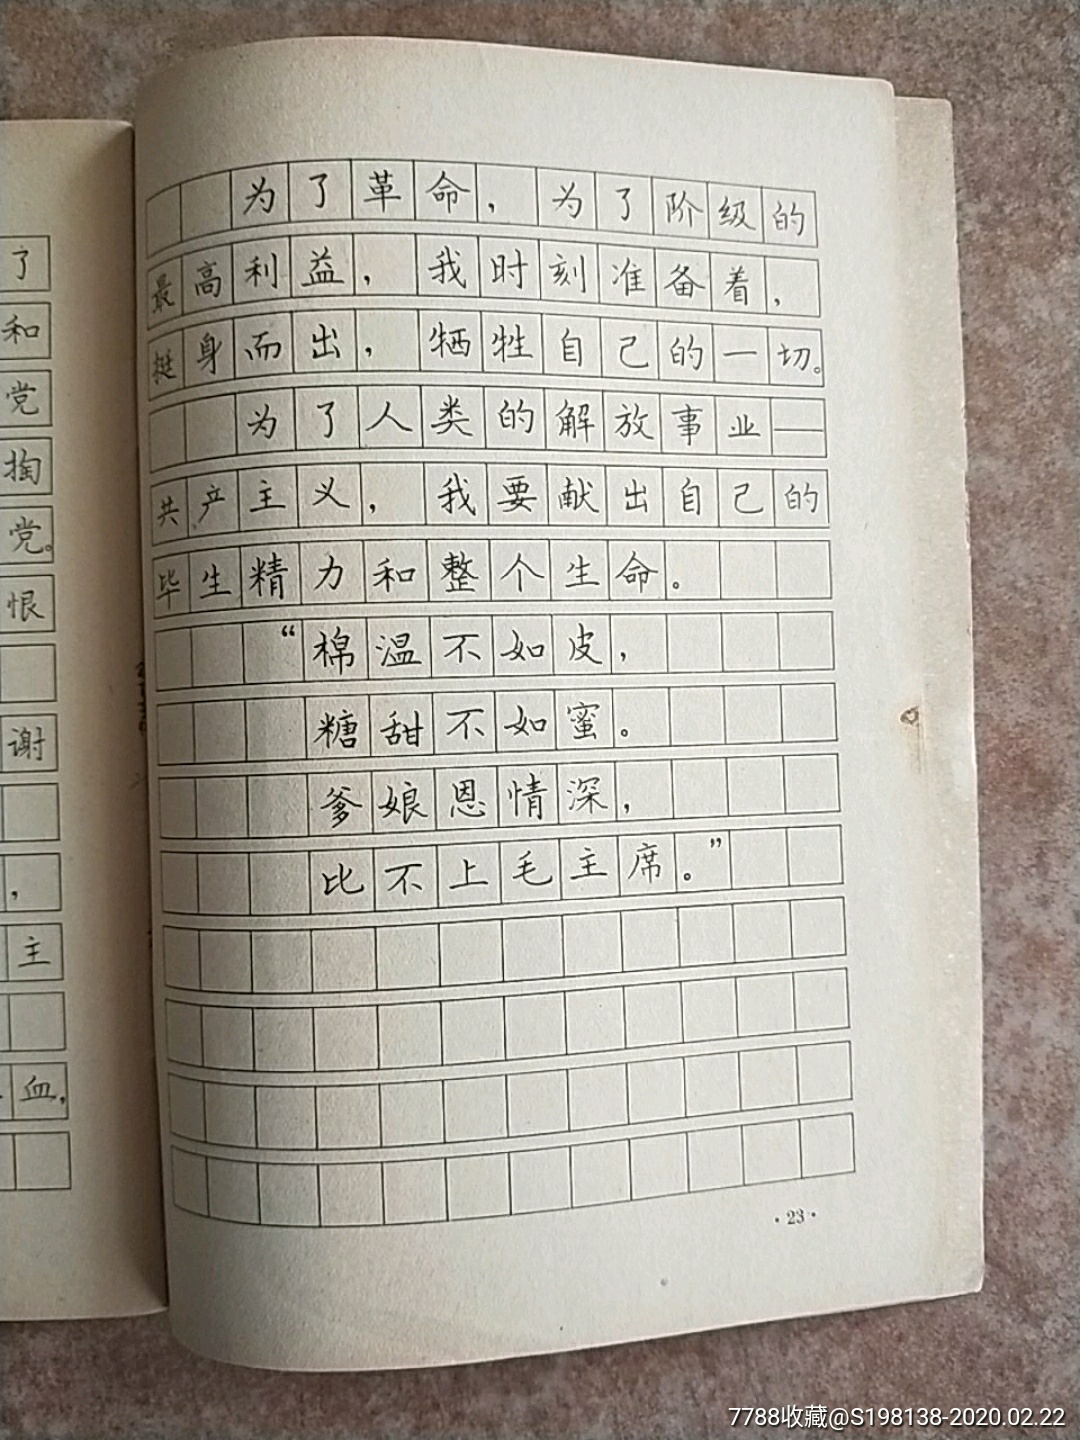 了
和
党
掏
党。
恨
谢
，
主
血，
为了革命，为了阶级的
最高利益，我时刻准备着，
挺身而出，牺牲自己的一切。
为了人类的解放事业—
共产主义，我要献出自己的
毕生精力和整个生命。
“棉温不如皮，
糖甜不如蜜。
爹娘恩情深，
比不上毛主席。”
·23·
7788收藏@S198138-2020.02.22